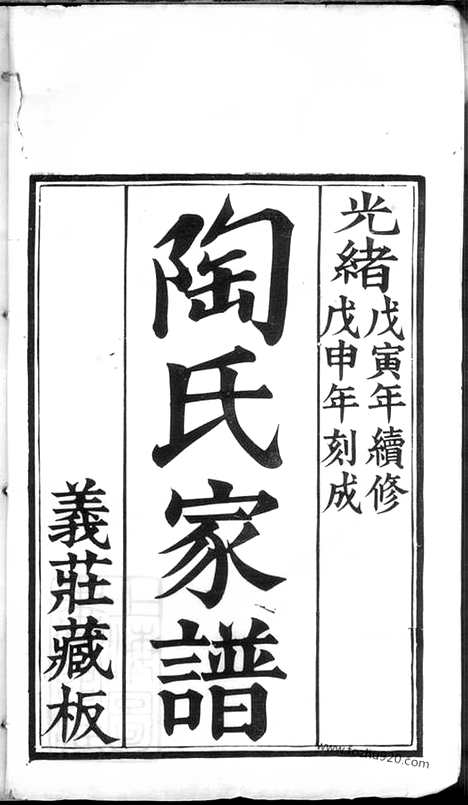 光緒
戊寅年續修
戊申年刻成
陶氏家譜
義莊藏板
www.fozhu920.com